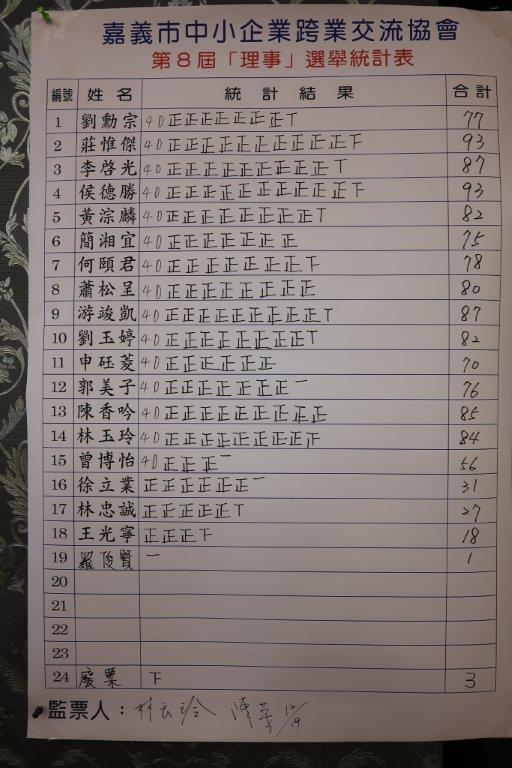 嘉義市中小企業跨業交流協會
第8屆「理事」選舉統計表
編號 姓名 統計結果 合計
1 劉勳宗 40正正正正正正正丅 77
2 莊惟傑 40正正正正正正正正正正下 93
3 李啓光 40正正正正正正正正正丅 87
4 侯德勝 40正正正正正正正正正正下 93
5 黃淙麟 40正正正正正正正正丅 82
6 簡湘宜 40正正正正正正正 75
7 何頤君 40正正正正正正正下 78
8 蕭松呈 40正正正正正正正正 80
9 游竣凱 40正正正正正正正正正丅 87
10 劉玉婷 40正正正正正正正正丅 82
11 申砡菱 40正正正正正正 70
12 郭美子 40正正正正正正正一 76
13 陳香吟 40正正正正正正正正正 85
14 林玉玲 40正正正正正正正正 84
15 曾博怡 40正正正一 56
16 徐立業 正正正正正正一 31
17 林忠誠 正正正正正丅 27
18 王光寧 正正正下 18
19 羅俊賢 一 1
20
21
22
23
24 廢票 下 3
監票人：